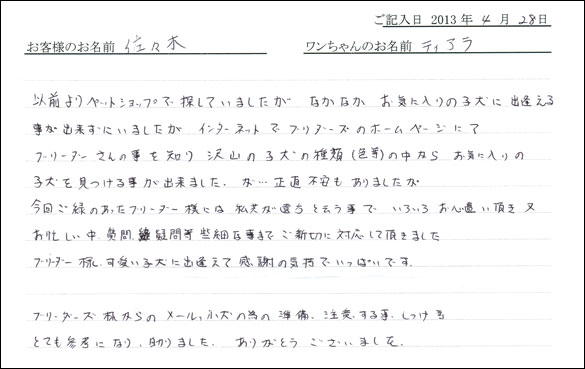 ご記入日 2013年4月28日
お客様のお名前 佐々木 ワンちゃんのお名前 ティアラ
以前よりペットショップで探していましたが なかなか お気に入りの子犬に出逢える
事が出来ずにいましたが インターネットでブリーダーズのホームページにて
ブリーダーさんの事を知り 沢山の子犬の種類(色等)の中から お気に入りの
子犬を見つける事が出来ました。が…正直不安もありましたが
今回ご縁のあったブリーダー様には 私共が遠方と云う事で いろいろ お心遣い頂き 又
お忙しい中、質問、疑問等 些細な事まで ご親切に対応して頂きました
ブリーダー様、可愛い子犬に出逢えて 感謝の気持でいっぱいです。
ブリーダーズ様からのメール、小犬の為の準備、注意する事、しつけ等
とても参考になり、助りました。ありがとうございました。